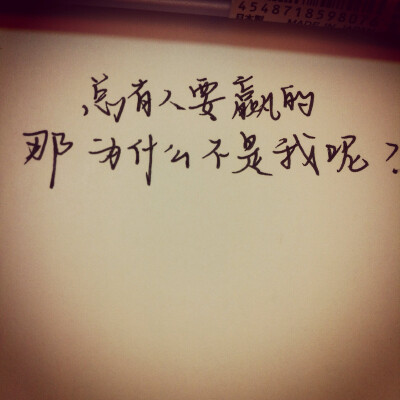 4548718598072
日本製
总有人要赢的
那为什么不是我呢？